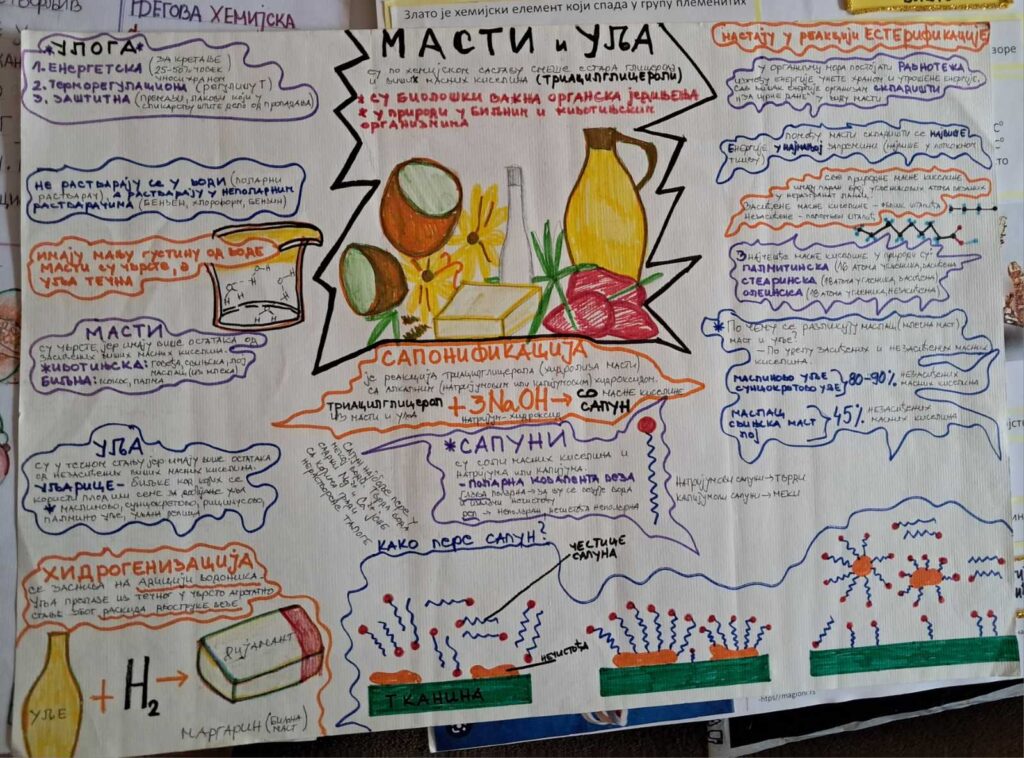 ЊЕГОВА ХЕМИЈСКА
Злато је хемијски елемент који спада у групу племенитих
зоре
*УЛОГА*
1. ЕНЕРГЕТСКА (ЗА КРЕТАЊЕ
25-50% ЧОВЕК
УНОСИ ХРАНОМ)
2. ТЕРМОРЕГУЛАЦИОНА (РЕГУЛИШУ Т)
3. ЗАШТИТНА
НЕ РАСТВАРАЈУ СЕ У ВОДИ (ПОЛАРНИ
РАСТВАРАЧ), А РАСТВАРАЈУ У НЕПОЛАРНИМ
РАСТВАРАЧИМА (БЕНЗЕН, ХЛОРОФОРМ, БЕНЗИН)
ИМАЈУ МАЊУ ГУСТИНУ ОД ВОДЕ
МАСТИ СУ ЧВРСТЕ, А
УЉА ТЕЧНА
МАСТИ
СУ ЧВРСТЕ ЈЕР ИМАЈУ ВИШЕ ОСТАТАКА ОД
ЗАСИЋЕНИХ ВИШИХ МАСНИХ КИСЕЛИНА.
ЖИВОТИЊСКА: ГОВЕЂА, СВИЊСКА, ЛОЈ
МАСЛАЦ (ИЗ МЛЕКА)
БИЉНА: КОКОС, ПАЛМА
УЉА
СУ У ТЕЧНОМ СТАЊУ ЈЕР ИМАЈУ ВИШЕ ОСТАТАКА
ОД НЕЗАСИЋЕНИХ ВИШИХ МАСНИХ КИСЕЛИНА.
УЉАРИЦЕ - БИЉКЕ КОД КОЈИХ СЕ
КОРИСТИ ПЛОД ИЛИ СЕМЕ ЗА ДОБИЈАЊЕ УЉА
* МАСЛИНОВО, СУНЦОКРЕТОВО, РИЦИНУСОВО,
ПАЛМИНО УЉЕ, УЉАНА РЕПИЦА
ХИДРОГЕНИЗАЦИЈА
СЕ ЗАСНИВА НА АДИЦИЈИ ВОДОНИКА.
УЉА ПРЕЛАЗЕ ИЗ ТЕЧНОГ У ЧВРСТО АГРЕГАТНО
СТАЊЕ ЗБОГ РАСКИДА ДВОСТРУКЕ ВЕЗЕ
УЉЕ
+ H2 →
ДИЈАМАНТ
МАРГАРИН (БИЉНА
МАСТ)
МАСТИ и УЉА
СУ ПО ХЕМИЈСКОМ САСТАВУ СМЕШЕ ЕСТАРА ГЛИЦЕРОЛА
И ВИШИХ МАСНИХ КИСЕЛИНА (ТРИАЦИЛГЛИЦЕРОЛИ)
* СУ БИОЛОШКИ ВАЖНА ОРГАНСКА ЈЕДИЊЕЊА
* У ПРИРОДИ У БИЉНИМ И ЖИВОТИЊСКИМ
ОРГАНИЗМИМА
САПОНИФИКАЦИЈА
ЈЕ РЕАКЦИЈА ТРИАЦИЛГЛИЦЕРОЛА (ХИДРОЛИЗА МАСТИ)
СА АЛКАЛНИМ (НАТРИЈУМОВИМ ИЛИ КАЛИЈУМОВИМ) ХИДРОКСИДОМ.
ТРИАЦИЛГЛИЦЕРОЛ + 3NaOH → СО МАСНЕ КИСЕЛИНЕ
ИЗ МАСТИ И УЉА НАТРИЈУМ-ХИДРОКСИД САПУН
*САПУНИ
СУ СОЛИ МАСНИХ КИСЕЛИНА И
НАТРИЈУМА ИЛИ КАЛИЈУМА.
- ПОЛАРНА КОВАЛЕНТА ВЕЗА
ГЛАВА ПОЛАРНА → ЗА ЊУ СЕ ВЕЗУЈЕ ВОДА
РЕП → НЕПОЛАРАН
САПУН НАЈБОЉЕ ПЕРЕ У
МЕКОЈ ВОДИ
КАКО ПЕРЕ САПУН?
ЧЕСТИЦЕ
САПУНА
НЕЧИСТОЋА
ТКАНИНА
НАСТАЈУ У РЕАКЦИЈИ ЕСТЕРИФИКАЦИЈЕ
У ОРГАНИЗМУ МОРА ПОСТОЈАТИ РАВНОТЕЖА
ИЗМЕЂУ ЕНЕРГИЈЕ УНЕТЕ ХРАНОМ И УТРОШЕНЕ ЕНЕРГИЈЕ,
САВ ВИШАК ЕНЕРГИЈЕ ОРГАНИЗАМ СКЛАДИШТИ
"ЗА ЦРНЕ ДАНЕ" У ВИДУ МАСТИ
ПОМОЋУ МАСТИ СКЛАДИШТИ СЕ НАЈВИШЕ
ЕНЕРГИЈЕ У НАЈМАЊОЈ ЗАПРЕМИНИ (НАЈВИШЕ У ПОТКОЖНОМ
ТКИВУ)
СВЕ ПРИРОДНЕ МАСНЕ КИСЕЛИНЕ
ИМАЈУ ПАРАН БРОЈ УГЉЕНИКОВИХ АТОМА ВЕЗАНИХ
У НЕРАЗГРАНАТ ЛАНАЦ.
ЗАСИЋЕНЕ МАСНЕ КИСЕЛИНЕ -
НЕЗАСИЋЕНЕ -
3 НАЈЧЕШЋЕ МАСНЕ КИСЕЛИНЕ У ПРИРОДИ СУ:
ПАЛМИТИНСКА (16 АТОМА УГЉЕНИКА, ЗАСИЋЕНА)
СТЕАРИНСКА (18 АТОМА УГЉЕНИКА, ЗАСИЋЕНА)
ОЛЕИНСКА (18 АТОМА УГЉЕНИКА, НЕЗАСИЋЕНА)
* ПО ЧЕМУ СЕ РАЗЛИКУЈУ МАСЛАЦ (МЛЕЧНА МАСТ)
МАСТ И УЉЕ?
- ПО УДЕЛУ ЗАСИЋЕНИХ И НЕЗАСИЋЕНИХ МАСНИХ
КИСЕЛИНА.
МАСЛИНОВО УЉЕ
СУНЦОКРЕТОВО УЉЕ } 80-90% НЕЗАСИЋЕНИХ
МАСНИХ КИСЕЛИНА
МАСЛАЦ
СВИЊСКА МАСТ
ЛОЈ } 45% НЕЗАСИЋЕНИХ
МАСНИХ КИСЕЛИНА
НАТРИЈУМОВИ САПУНИ → ТВРДИ
КАЛИЈУМОВИ САПУНИ → МЕКИ